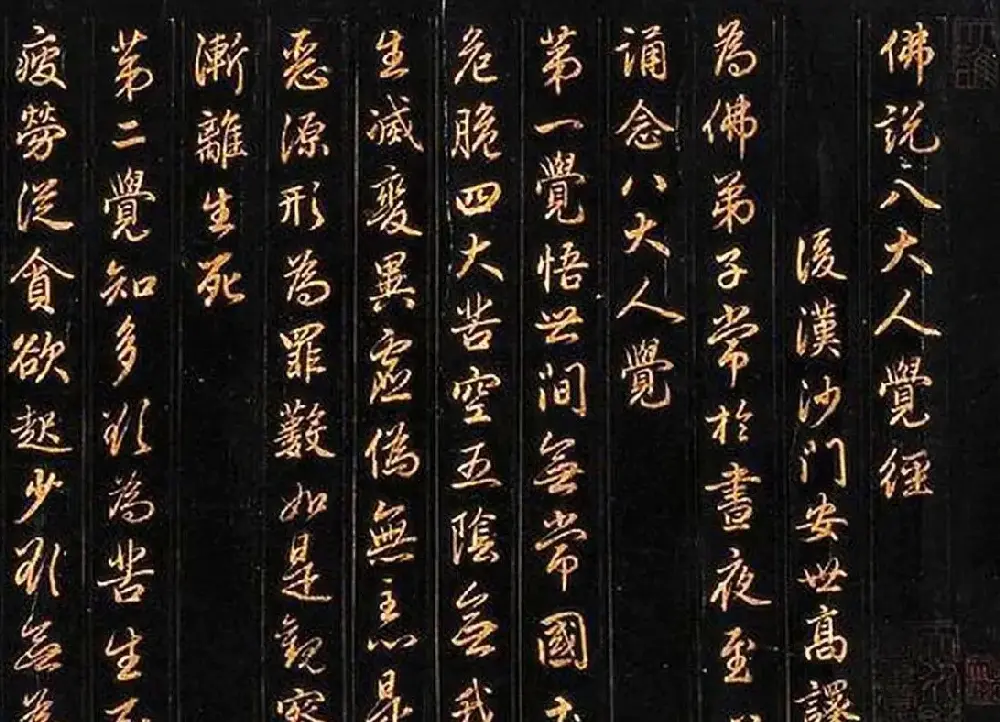 佛說八大人覺經
後漢沙門安世高譯
為佛弟子常於晝夜至
誦念八大人覺
第一覺悟世間無常國
危脆四大苦空五陰無我
生滅變異虛偽無主心是
惡源形為罪藪如是觀察
漸離生死
第二覺知多欲為苦生死
疲勞從貪欲起少欲無為